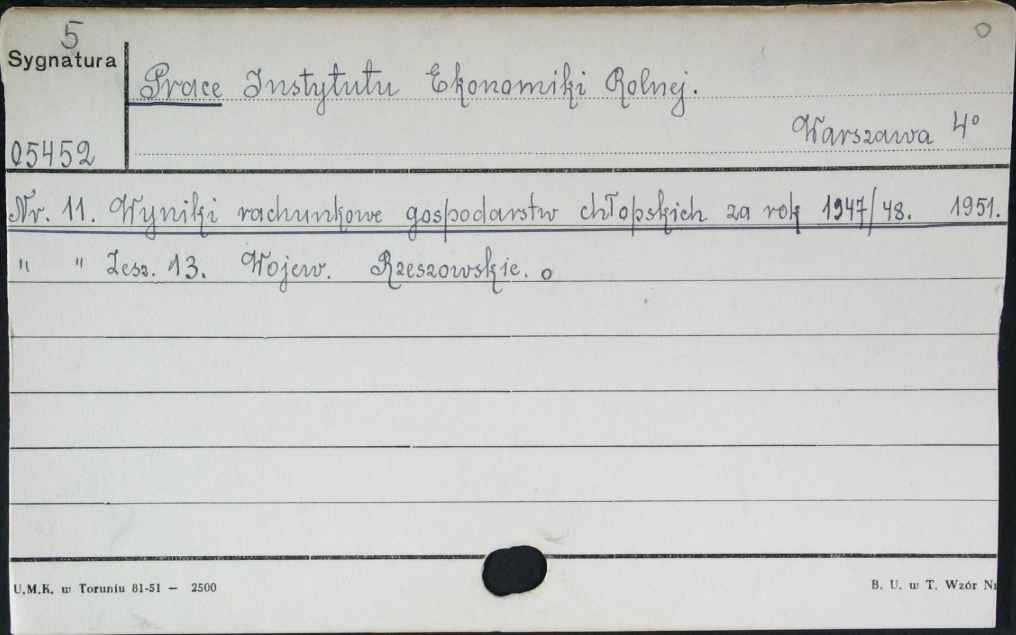 5
o
Sygnatura
Prace Instytutu Ekonomiki Rolnej.
05452
Warszawa 4°
Nr. 11. Wyniki rachunkowe gospodarstw chłopskich za rok 1947/48. 1951.
" " Zesz. 13. Wojew. Rzeszowskie. o
U.M.K. w Toruniu 81-51 — 2500
B. U. w T. Wzór Nr